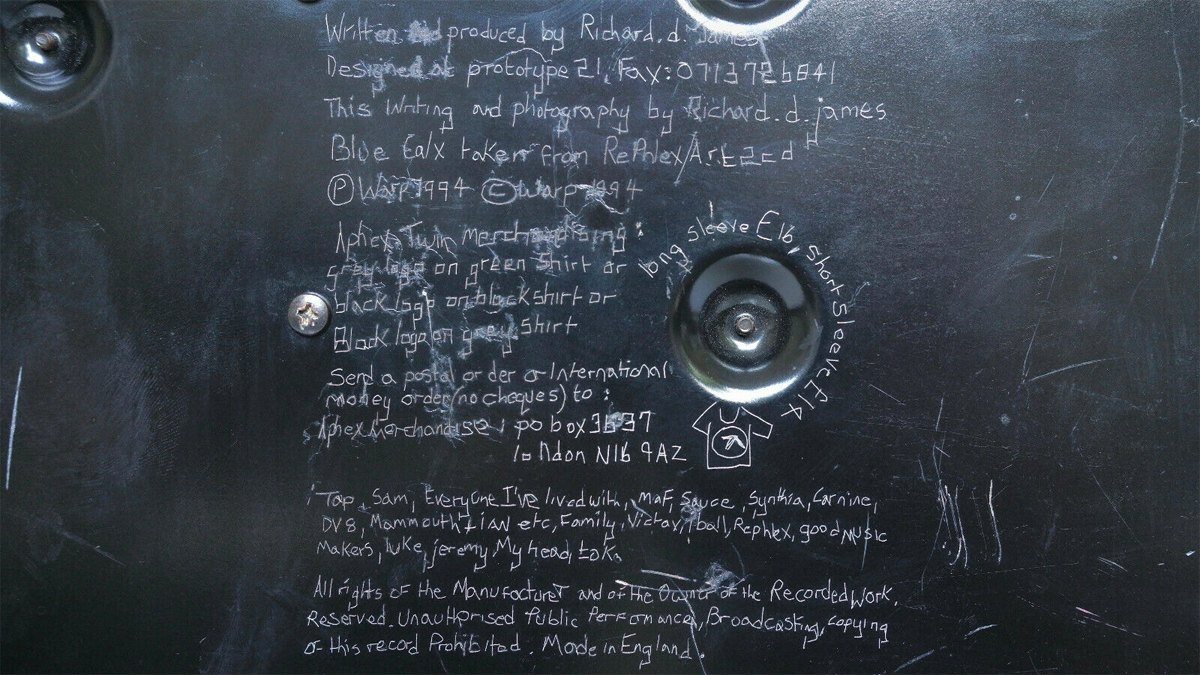 Written and produced by Richard. d. James
Designed at prototype 21, Fax: 0713726841
This Writing and photography by Richard. d. james
Blue Calx taken from Rephlex/Art 2cd
Ⓟ Warp 1994 © Warp 1994
Aphex Twin merchandising:
grey logo on green Shirt or
black logo on black shirt or
Black logo on grey shirt
long sleeve £16, short sleeve £14
Send a postal or der or International
money order (no cheques) to :
Aphex Merchandise : po box 3637
london N16 9AZ
Tap, Sam, Everyone I've lived with, Maf, Sauce, Synthia, Carnine,
DV8, Mammouth, Lian etc, Family, 1ball, Rephlex, good Music
Makers, Luke, jeremy, My head,
All rights of the Manufacturer and of the Owner of the Recorded Work,
Reserved. Unauthorised Public Performance, Broadcasting, copying
of this record Prohibited. Made in England.